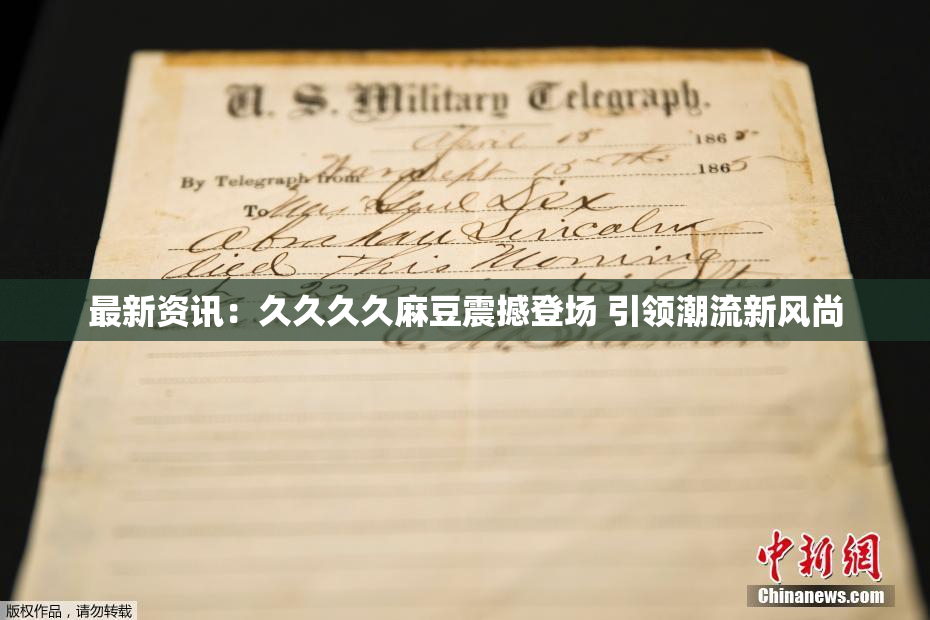 U. S. Military Telegraph.
April 15 1865
By Telegraph from War Dept 15th 1865
To Maj Genl Dix
Abraham Lincoln
died This Morning
at 22 minutes after
最新资讯：久久久久麻豆震撼登场 引领潮流新风尚
中新網
Chinanews.com
版权作品，请勿转载